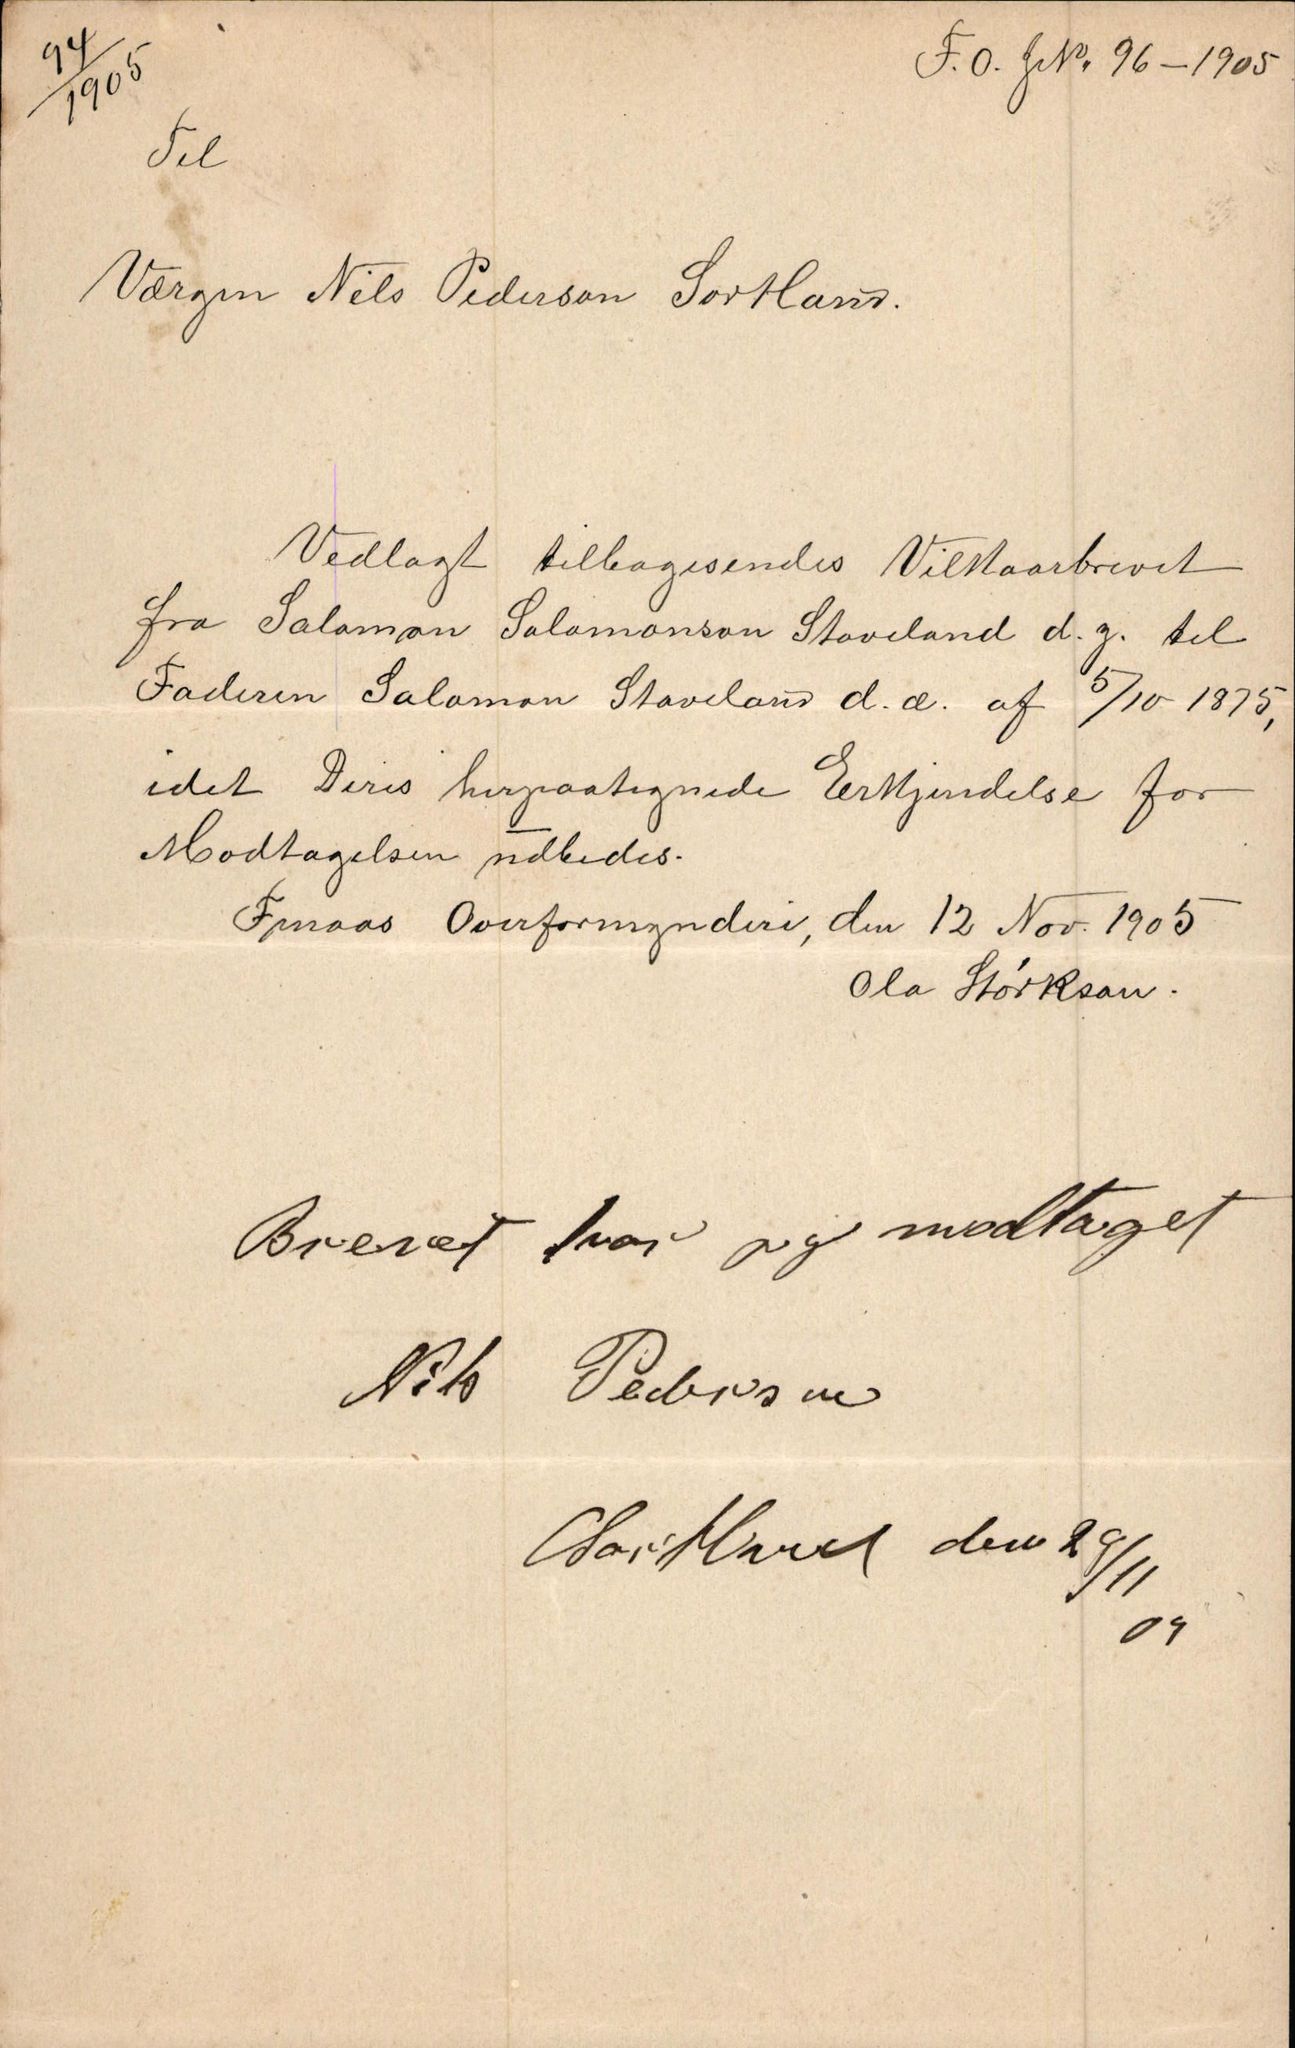 94/1905
F.O. JNo. 96 – 1905
Til
Værgen Nils Pederson Sortland.
Vedlagt tilbagesendes Vilkaarbrevet
fra Salomon Salomonson Staveland d.y. til
Faderen Salomon Staveland d.æ. af 5/10 1875,
idet Deres herpaategnede Erkjendelse for
Modtagelsen udbedes.
Finaas Overformynderi, den 12 Nov. 1905
Ola Størkson.
Brevet har jeg modtaget
Nils Pederson
Sortland den 29/11
05